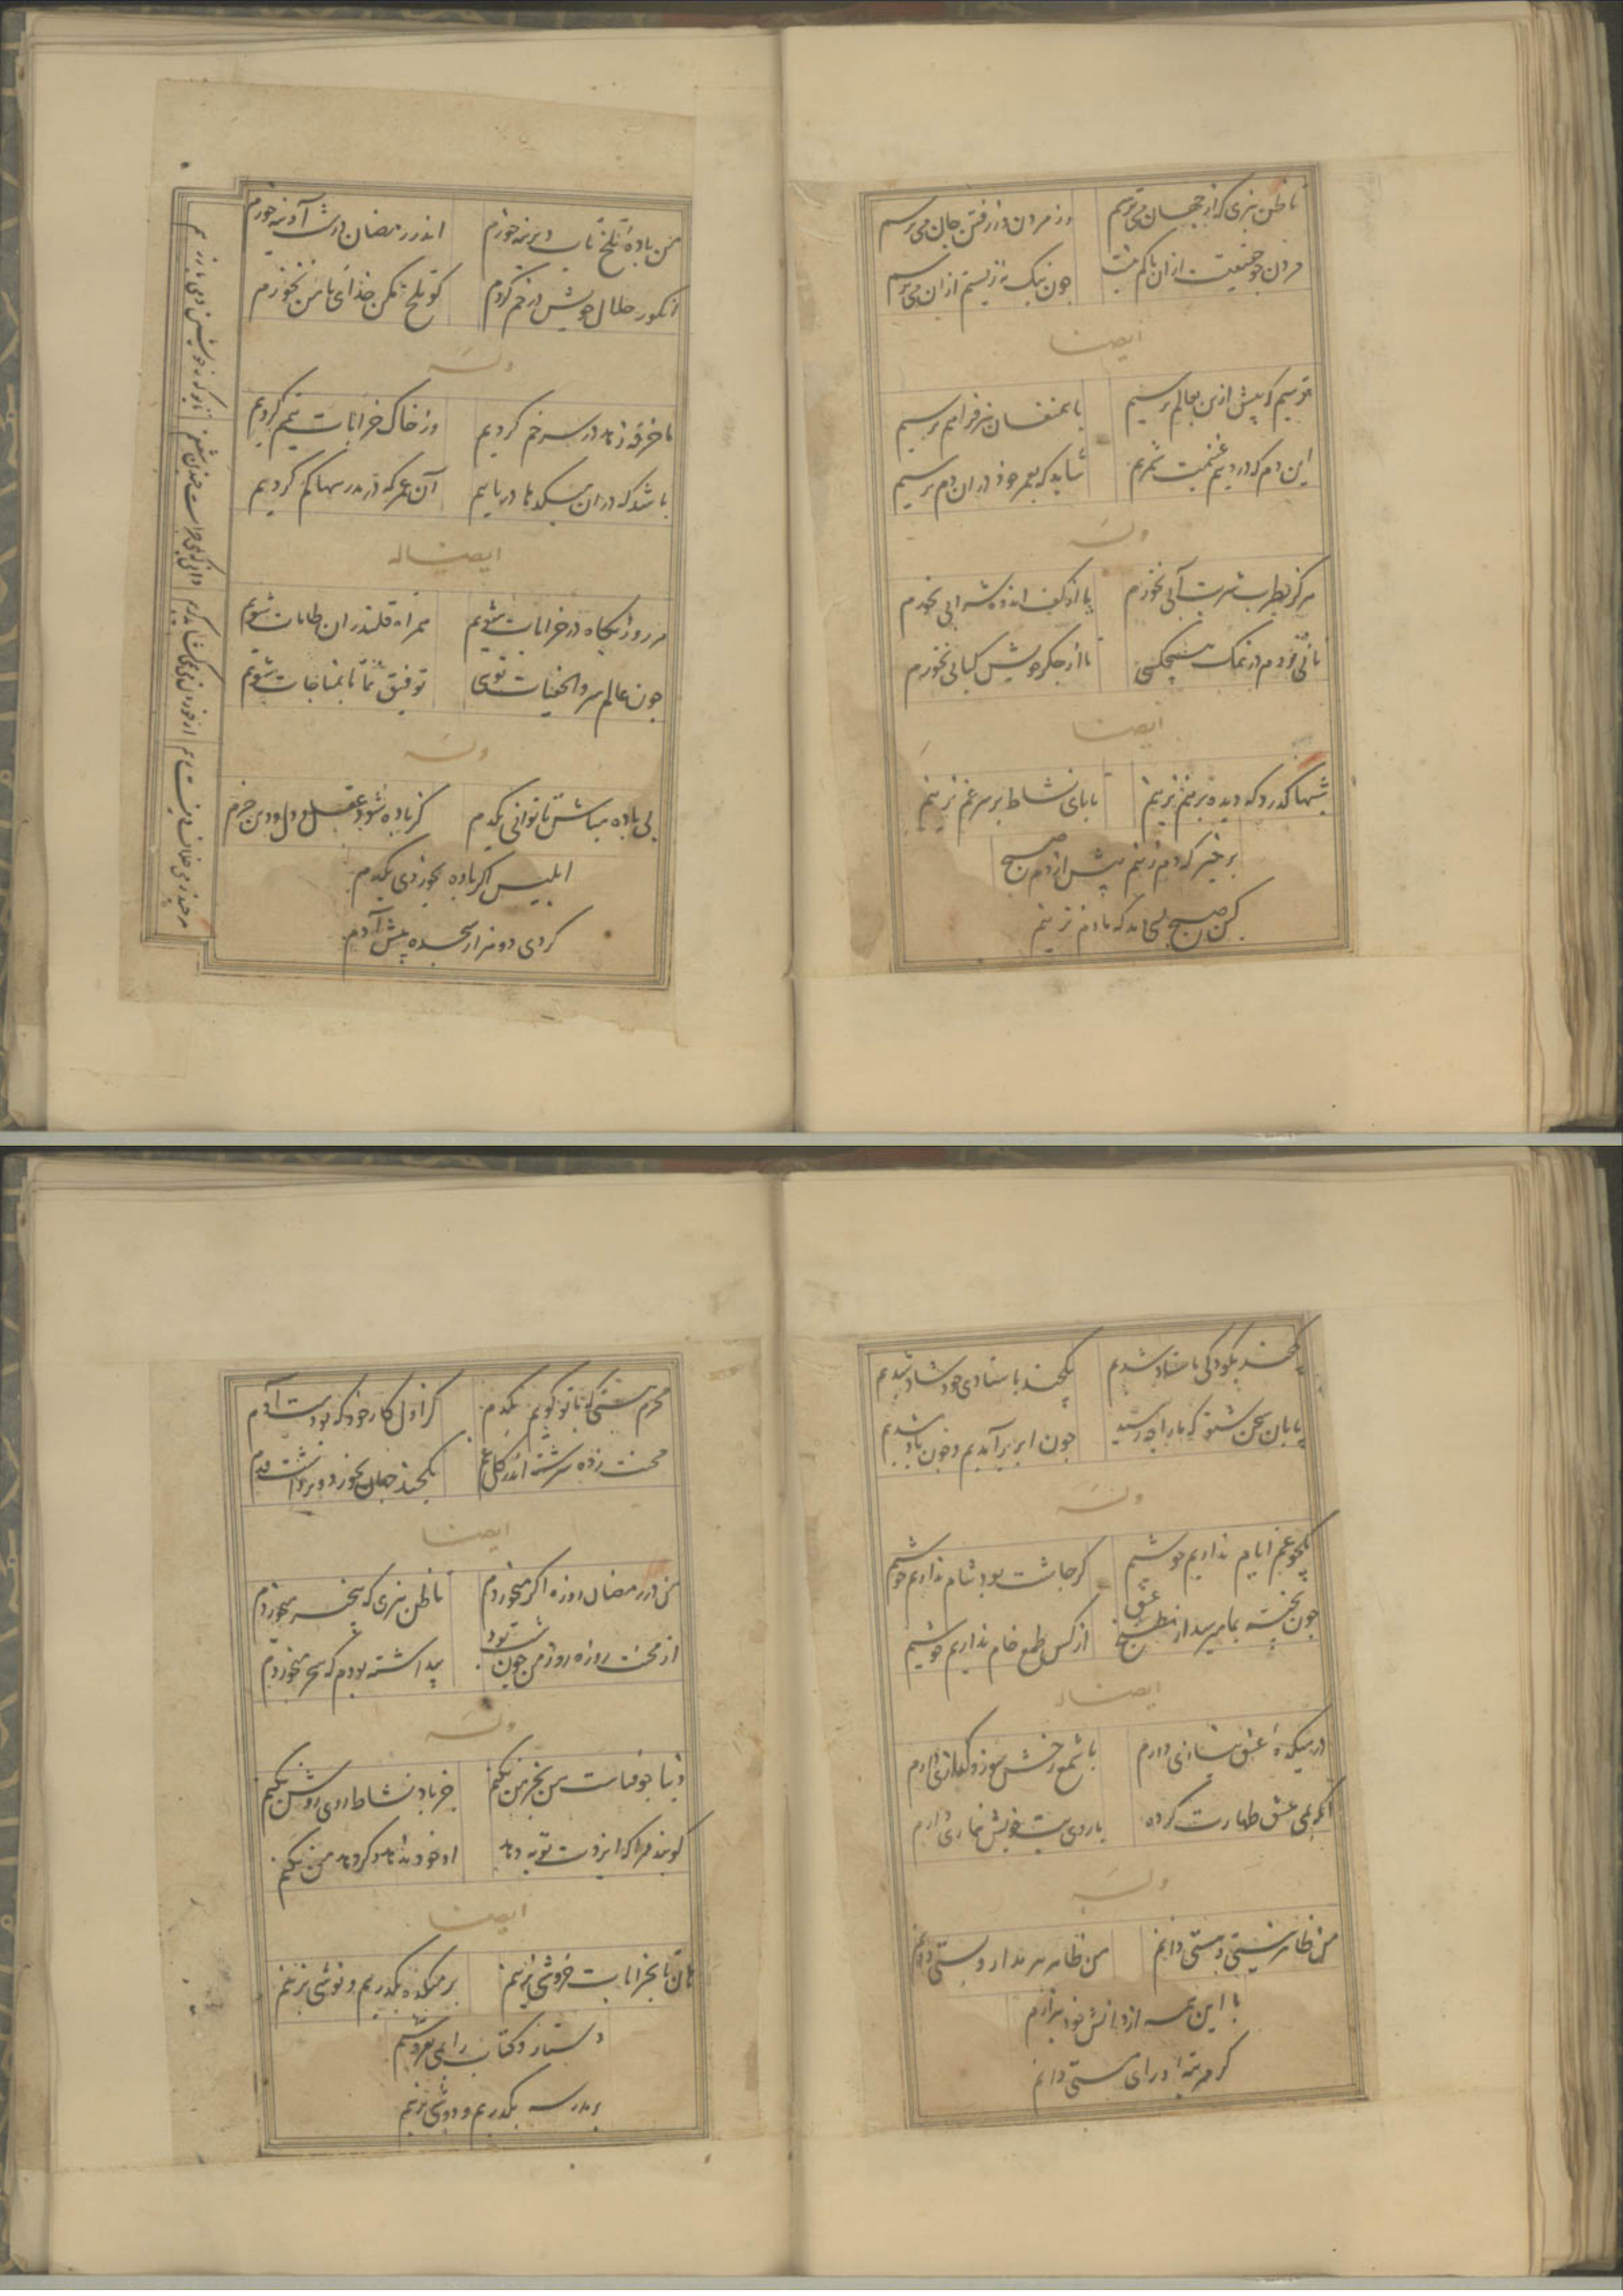 تا ظن نبری که از جهان می ترسم
وز مردن و از رفتن جان می ترسم
مردن چو حقیقت است ازان باکم نیست
چون نیک نزیستم ازان می ترسم
ایضا
ترسیم که پیش ازین بعالم نرسیم
با همنفسان نیز فراهم نرسیم
این دم که درویم غنیمت شمریم
شاید که بعمر خود دران دم نرسیم
وله
هرگز بطرب شربت آبی نخورم
تا از کف اندوه شرابی نخورم
نانی نزدم در نمک هیچکسی
تا از جگر خویش کبابی نخورم
ایضا
شبها گذرد که دیده برهم نزنیم
تا پای نشاط بر سر غم نزنیم
برخیز که دم زنیم پیش از دم صبح
کین صبح بسی دمد که ما دم نزنیم
من باده تلخ ناب دیرینه خورم
اندر رمضان در شب آدینه خورم
انکور حلال خویش در خم کردم
کو تلخ مکن خدای تا من نخورم
وله
ما خرقه زهد در سر خم کردیم
وز خاک خرابات تیمم کردیم
باشد که دران میکدها دریابیم
آن عمر که در مدرسها کم کردیم
ایضا له
هر روز بکاه در خرابات شویم
همراه قلندران طامات شویم
چون عالم سر والخفیات توی
توفیق نما تا بمناجات شویم
وله
بی باده مباش تا توانی یکدم
کز باده شود عقل و دل و دین خرم
ابلیس اکر باده بخوردی یکدم
کردی دو هزار سجده پیش آدم
یکچند بکودکی باستاد شدیم
یکچند باستادی خود شاد شدیم
پایان سخن شنو که ما را چه رسید
چون ابر برآمدیم و چون باد شدیم
وله
یکجو غم ایام نداریم خوشیم
کر چاشت بود شام نداریم خوشیم
چون پخته بما میرسد از مطبخ عشق
از کس طمع خام نداریم خوشیم
ایضا له
در میکده عشق نیازی دارم
با شمع رخش سوز و کدازی دارم
آنکه بمی عشق طهارت کرده
با روی بت خویش نمازی دارم
وله
من ظاهر نیستی و هستی دانم
من ظاهر هر مدار و پستی دانم
با این همه از دانش خود بیزارم
کر مرتبه ورای مستی دانم
محرم هستی که با تو کویم یکدم
کز اول کار خود که بودست آدم
محنت زده سرشته اندر کل غم
یکچند جهان بخورد و برداشت قدم
ایضا
من در رمضان روزه اکر میخوردم
تا ظن نبری که بیخبر میخوردم
از محنت روزه روز من چون شب بود
پنداشته بودم که سحر میخوردم
وله
دنیا چو فناست من بجز من نکنم
جز یاد نشاط و می روشن نکنم
کویند مرا که ایزدت توبه دهاد
او خود ندهد و کر دهد من نکنم
ایضا
هان تا بخرابات خروشی بزنیم
بر میکده بکذریم و نوشی بزنیم
دستار و کتاب را بمی بفروشیم
بر مدرسه بکذریم و دوشی بزنیم